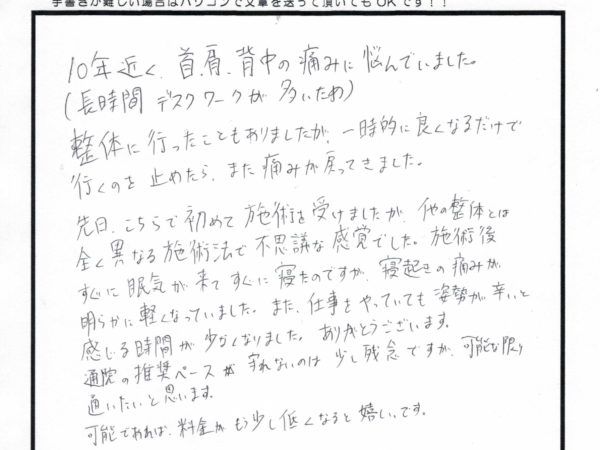 手書きが難しい場合はパソコンで文章を送って頂いてもOKです！！
10年近く、首、肩、背中の痛みに悩んでいました。
(長時間 デスクワークが 多いため)
整体に行ったこともありましたが、一時的に良くなるだけで
行くのを止めたら、また痛みが戻ってきました。
先日、こちらで初めて施術を受けましたが、他の整体とは
全く異なる施術法で不思議な感覚でした。施術後
すぐに眠気が来てすぐに寝たのですが、寝起きの痛みが
明らかに軽くなっていました。また、仕事をやっていても姿勢が辛いと
感じる時間が少なくなりました。ありがとうございます。
通院の推奨ペースが守れないのは少し残念ですが、可能な限り
通いたいと思います。
可能であれば、料金がもう少し低くなると嬉しいです。